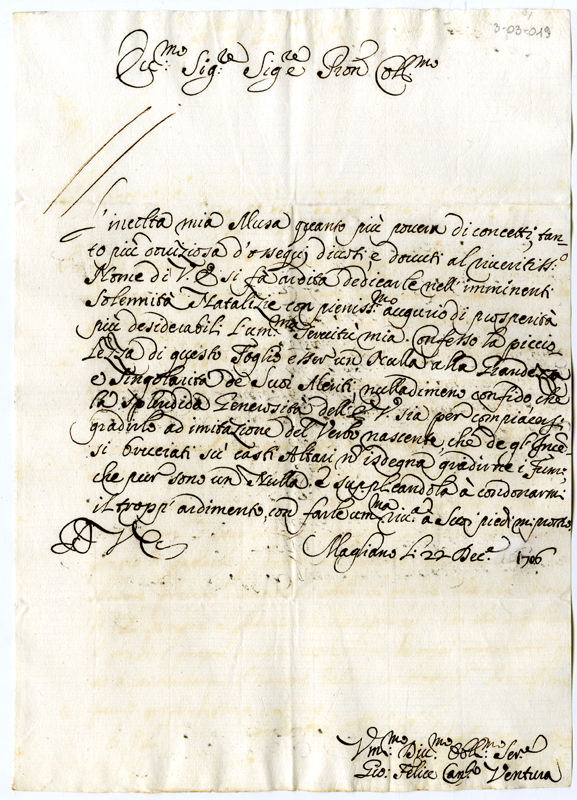 3-03-019
Ecc.mo Sig.re Sig.re Pron Coll.mo
L'incolta mia Musa quanto più povera di concetti, tan-
to più doviziosa d'ossequij divoti, e dovuti al riveritiss.o
Nome di V. E. si fa ardita dedicarle nell'imminenti
Solennità Natalizie con pieniss.mo augurio di prosperità
più desiderabili l'um.ma Servitù mia. Confesso la piccio-
lezza di questo Foglio esser un Nulla alla Grandezza
e Singolarità de Suoi Meriti, nulladimeno confido che
la splendida Generosità dell'E. V. sia per compiacersi
gradirlo ad imitazione del Verbo nascente, che de gl'Incē
si bruciati su' casti Altari nō isdegna gradirne i Fumi,
che pur sono un Nulla. E supplicandola à condonarmi
il tropp'ardimento, con farle um.ma riv.a a Suoi piedi mi prostro
D V E
Magliano li 22 Dec.e 1706
Vm.mo Div.mo Obl.mo Ser.e
Gio: Felice Can.co Ventura